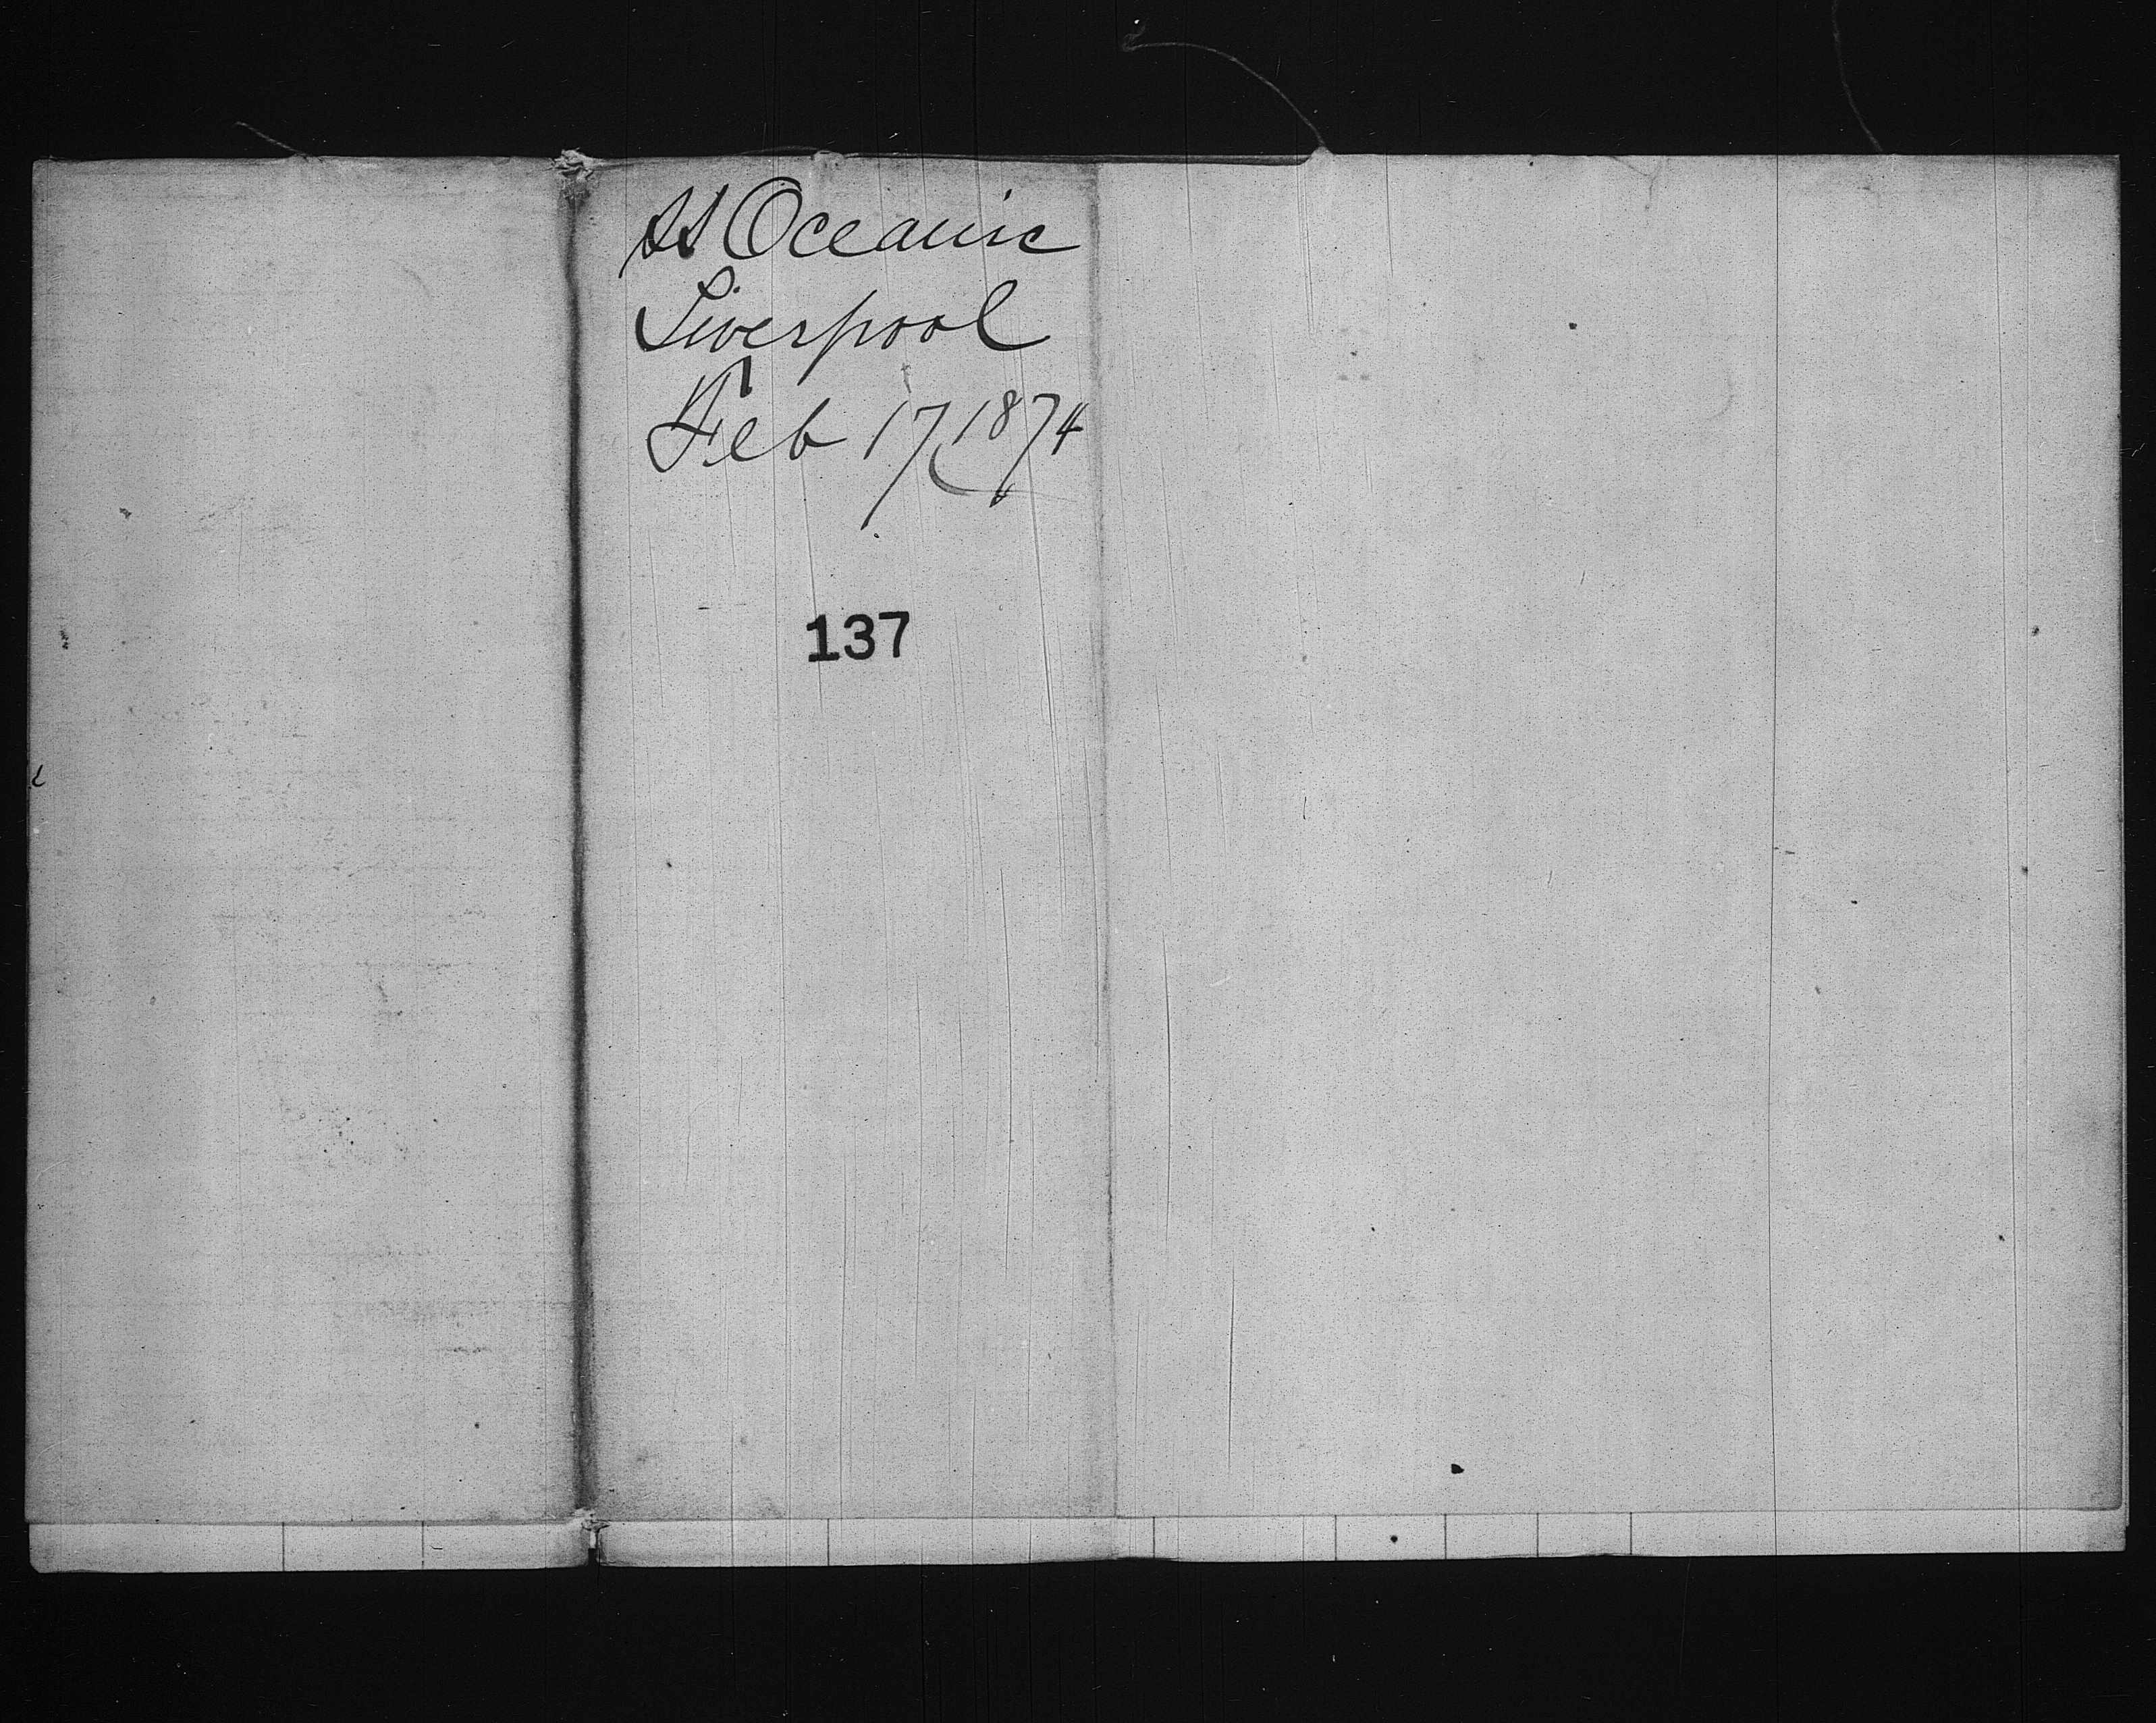 SS Oceanic
Liverpool
Feb 17 1874
137